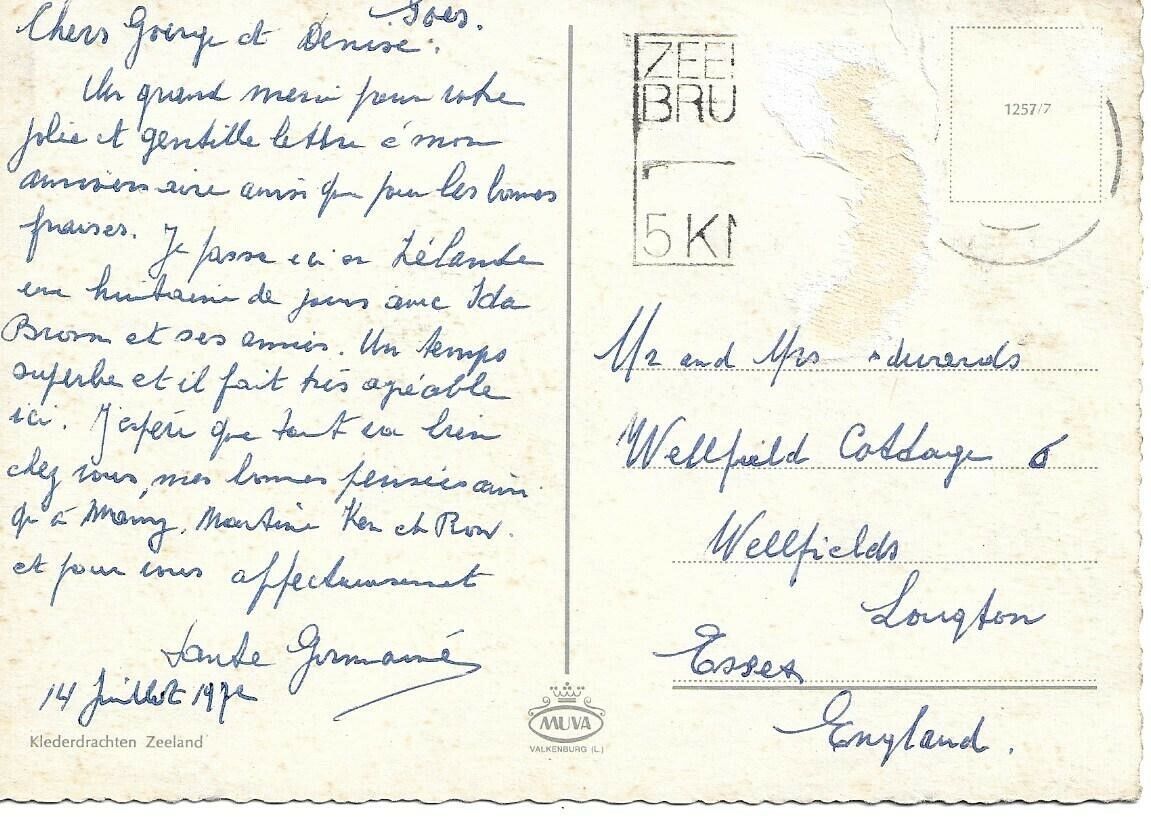 Goes.
Chers George et Denise.
Un grand merci pour votre
jolie et gentille lettre à mon
anniversaire ainsi que pour les bonnes
fraises. Je passe ici en Zélande
une huitaine de jours avec Ida
Brown et ses amies. Un temps
superbe et il fait très agréable
ici. J'espère que tout va bien
chez vous, mes bonnes pensées ainsi
qu'à Mamy, Martine Ken et Ron.
et pour vous affectueusement
Tante Germaine
14 Juillet 197
Klederdrachten Zeeland
MUVA
VALKENBURG (L.)
ZEE
BRU
5 KM
1257/7
Mr and Mrs dwards
Wellfield Cottage 6
Wellfields
Lougton
Essex
England.